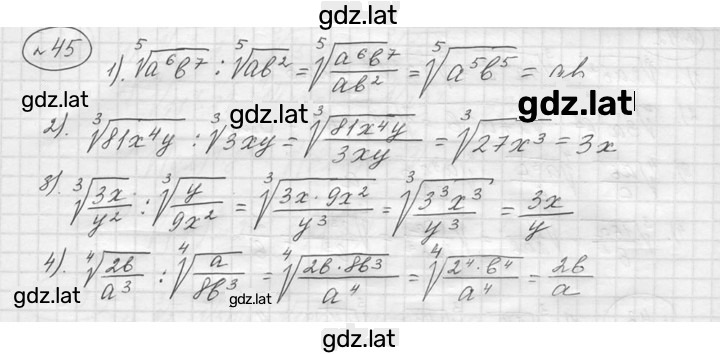 gdz.lat
№45
1). ⁵√(a⁶b⁷) : ⁵√(ab²) = ⁵√(a⁶b⁷/ab²) = ⁵√(a⁵b⁵) = ab
gdz.lat gdz.lat gdz.lat
2). ³√(81x⁴y) : ³√(3xy) = ³√(81x⁴y/3xy) = ³√(27x³) = 3x
gdz.lat
3). ³√(3x/y²) : ³√(y/9x²) = ³√(3x·9x²/y³) = ³√(3³x³/y³) = 3x/y
4). ⁴√(2b/a³) : ⁴√(a/8b³) = ⁴√(2b·8b³/a⁴) = ⁴√(2⁴·b⁴/a⁴) = 2b/a
gdz.lat gdz.lat gdz.lat
gdz.lat